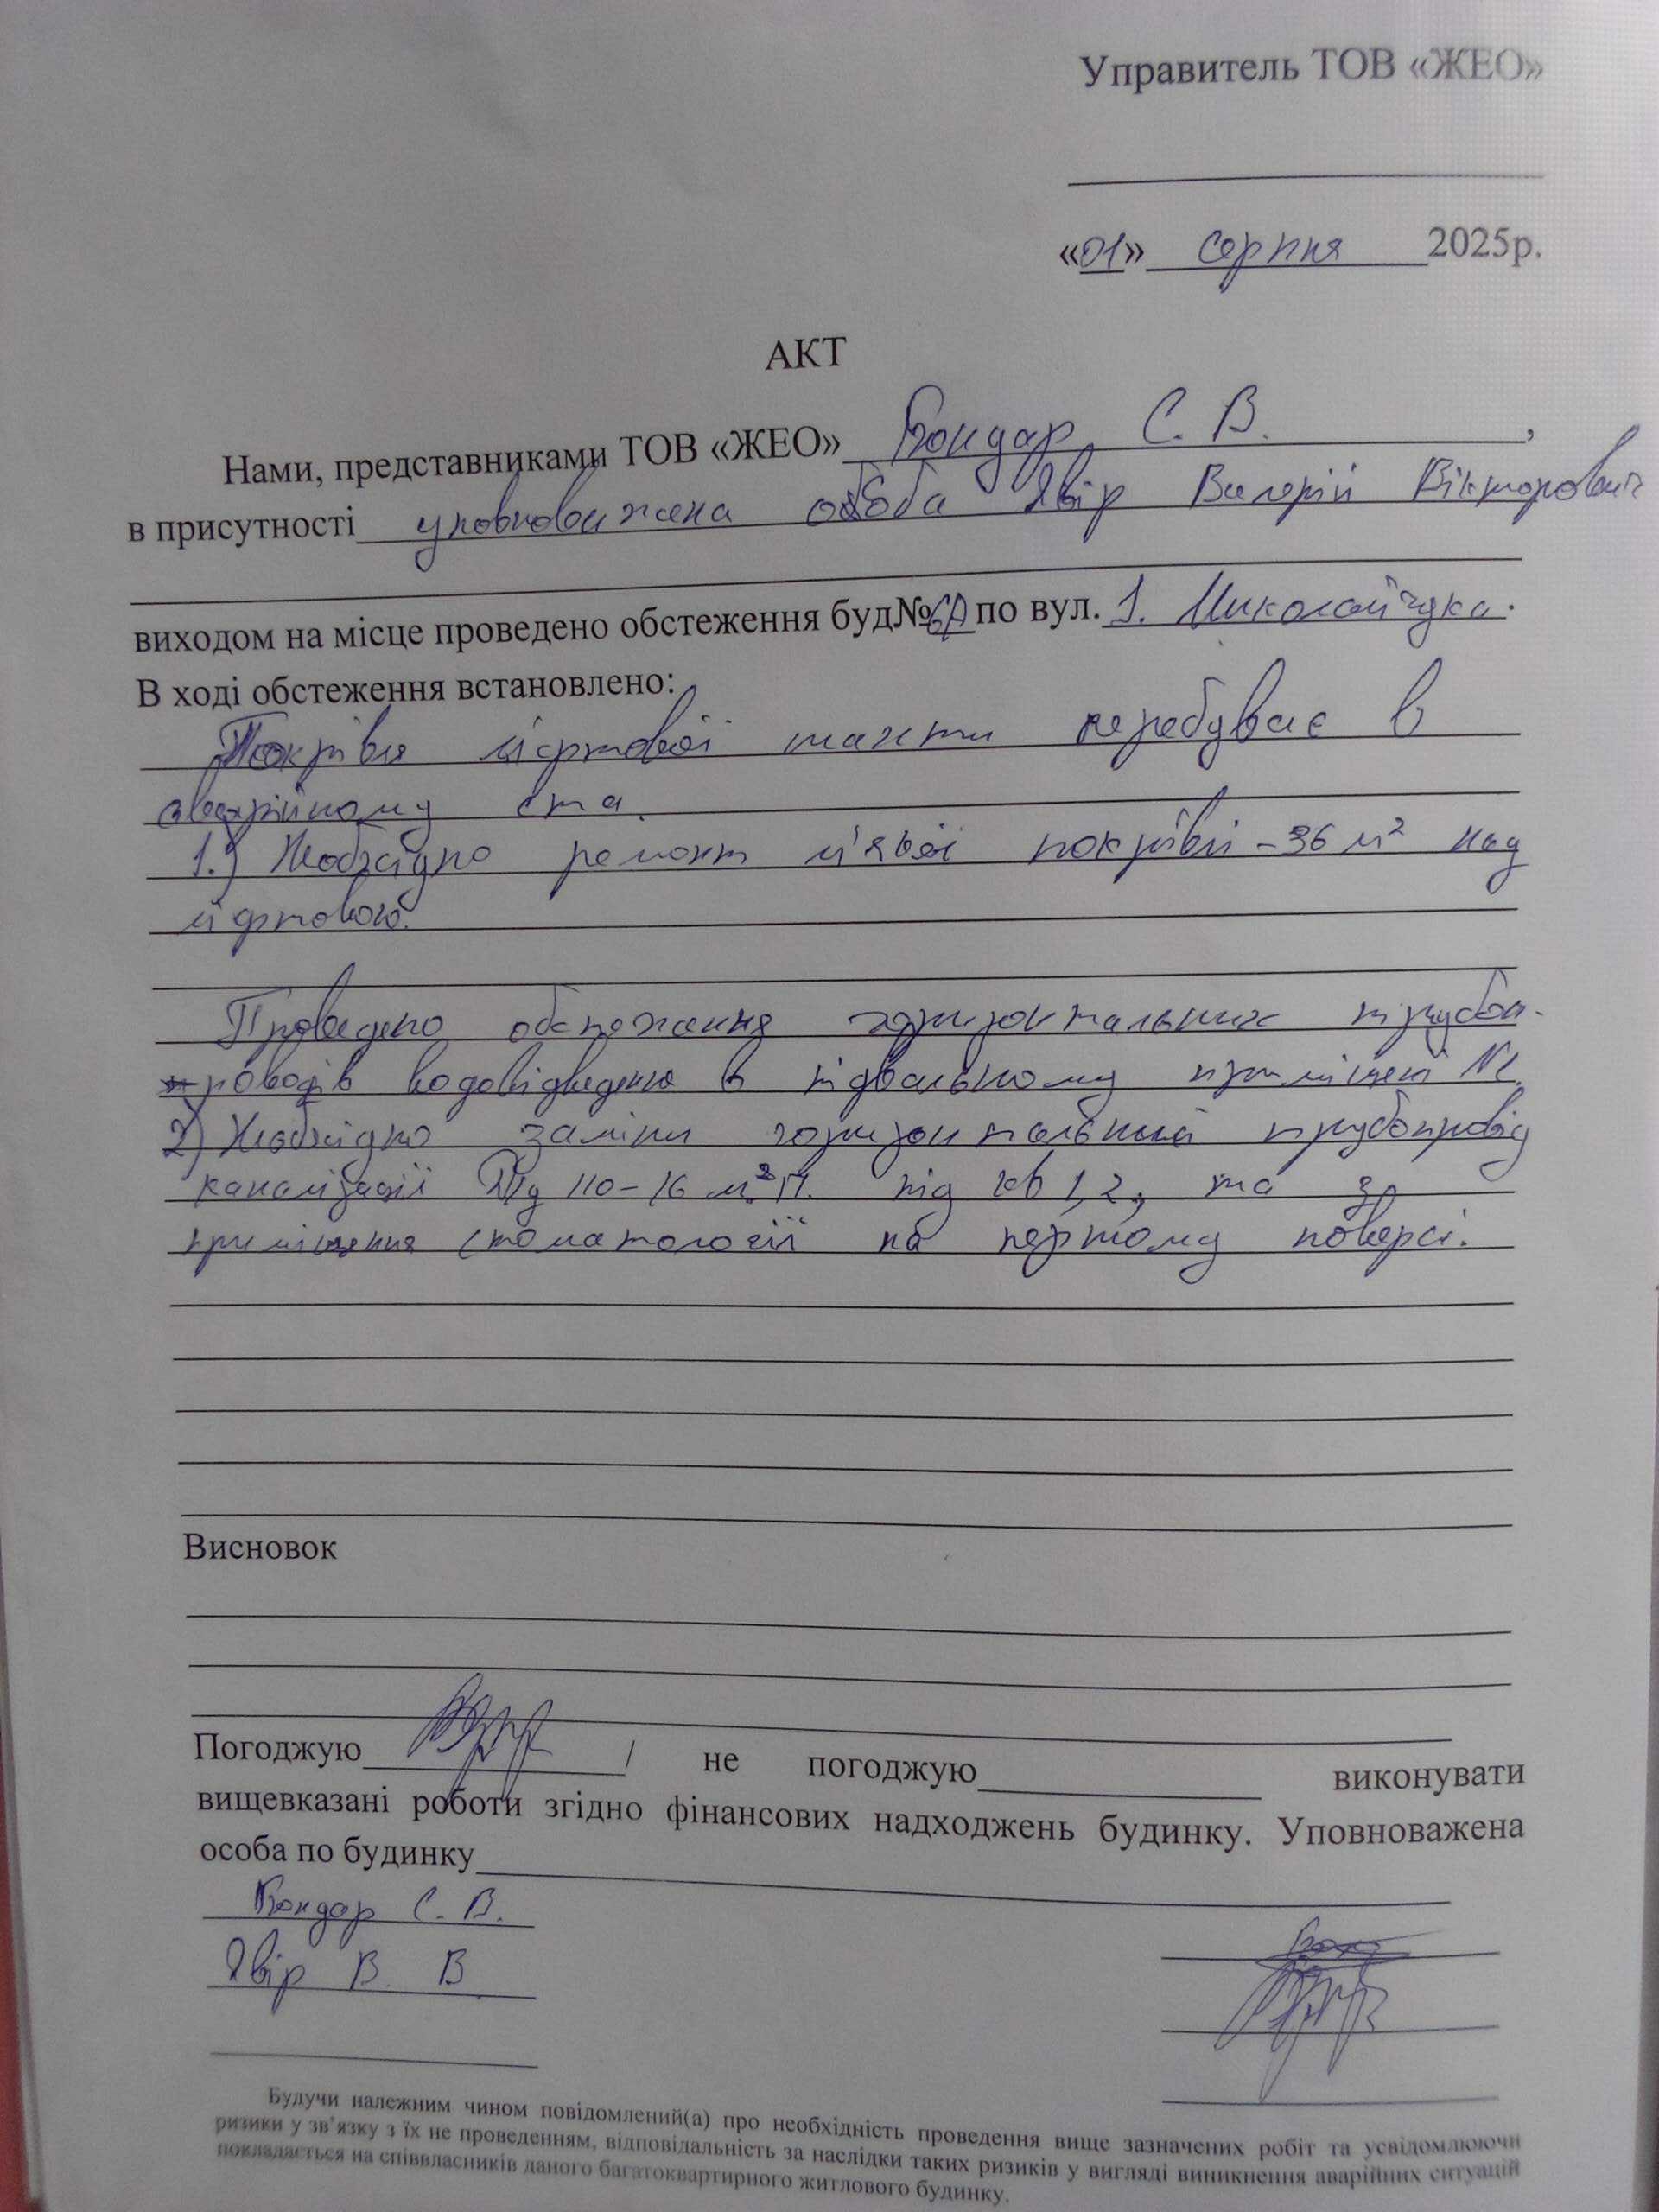 Управитель ТОВ «ЖЕО»
«01» серпня 2025р.
АКТ
Нами, представниками ТОВ «ЖЕО» Бондар С. В.,
в присутності уповноважена особа Явір Валерій Вікторович
виходом на місце проведено обстеження буд№6А по вул. І. Миколайчука.
В ході обстеження встановлено:
Покрівля ліфтової шахти перебуває в
аварійному ста.
1.) Необхідно ремонт м'якої покрівлі - 36 м² над
ліфтовою.
Проведено обстеження горизонтальних трубоп-
роводів водовідведення в підвальному приміщені №1.
2) Необхідно заміни горизонтальний трубопровід
каналізації 110 - 16 м.п. під кв 1,2, та
приміщення стоматології на першому поверсі.
Висновок
Погоджую / не погоджую виконувати
вищевказані роботи згідно фінансових надходжень будинку. Уповноважена
особа по будинку
Бондар С. В.
Явір В. В
Будучи належним чином повідомлений(а) про необхідність проведення вище зазначених робіт та усвідомлюючи
ризики у зв'язку з їх не проведенням, відповідальність за наслідки таких ризиків у вигляді виникнення аварійних ситуацій
покладається на співвласників даного багатоквартирного житлового будинку.